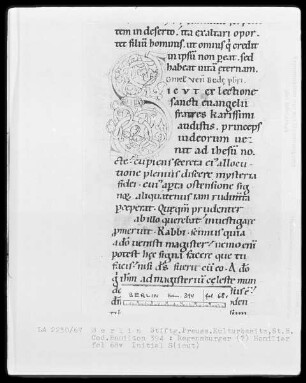 tem in deserto. ita exaltari opor
tet filiū hominis. ut omnis q' credit
in ipsū non peat. sed
habeat uitā eternam.
Omel' ven̄ Bede pb̄ri.
ICUT ex lectione
sancti euangelii
fratres karissimi
audistis. princeps
iudeorum ue
nit ad ihesū no
cte. cupiens secreta ei' allocu
tione plenius discere mysteria
fidei. cui' apta ostensione sig
noꝝ. aliquatenus iam rudimta
pceperat. Qui qm̄ prudenter
ab illo querebat inuestigare
pmeruit. Rabbi. scimus quia
a dō uenisti magister. nemo enim
potest hęc signa facere que tu
facis. nisi ds̄ fuerit cū eo. A dō
g' ihm̄ ad magisteriū celeste
BERLIN Ham. 314 fol 68v
LA 2230/67 Berlin Stiftg.Preuss.Kulturbesitz,St.B.
Cod.Hamilton 314 : Regensburger (?) Homiliar
fol 68v Initial S(icut)